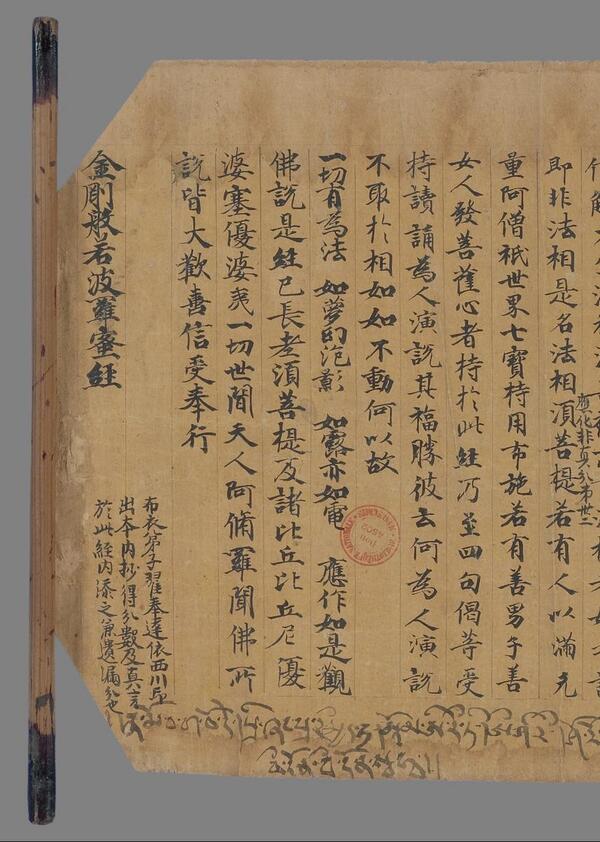 即非法相是名法相須菩提若有人以滿无
應化非真分第卅二
量阿僧祇世界七寶持用布施若有善男子善
女人發菩薩心者持於此經乃至四句偈等受
持讀誦為人演說其福勝彼云何為人演說
不取於相如如不動何以故
一切有為法 如夢幻泡影 如露亦如電 應作如是觀
佛說是經已長老須菩提及諸比丘比丘尼優
婆塞優婆夷一切世間天人阿脩羅聞佛所
說皆大歡喜信受奉行
布衣弟子翟奉達依西川印
出本內抄得分數及真言
於此經內添之兼遺漏分也
金剛般若波羅蜜經